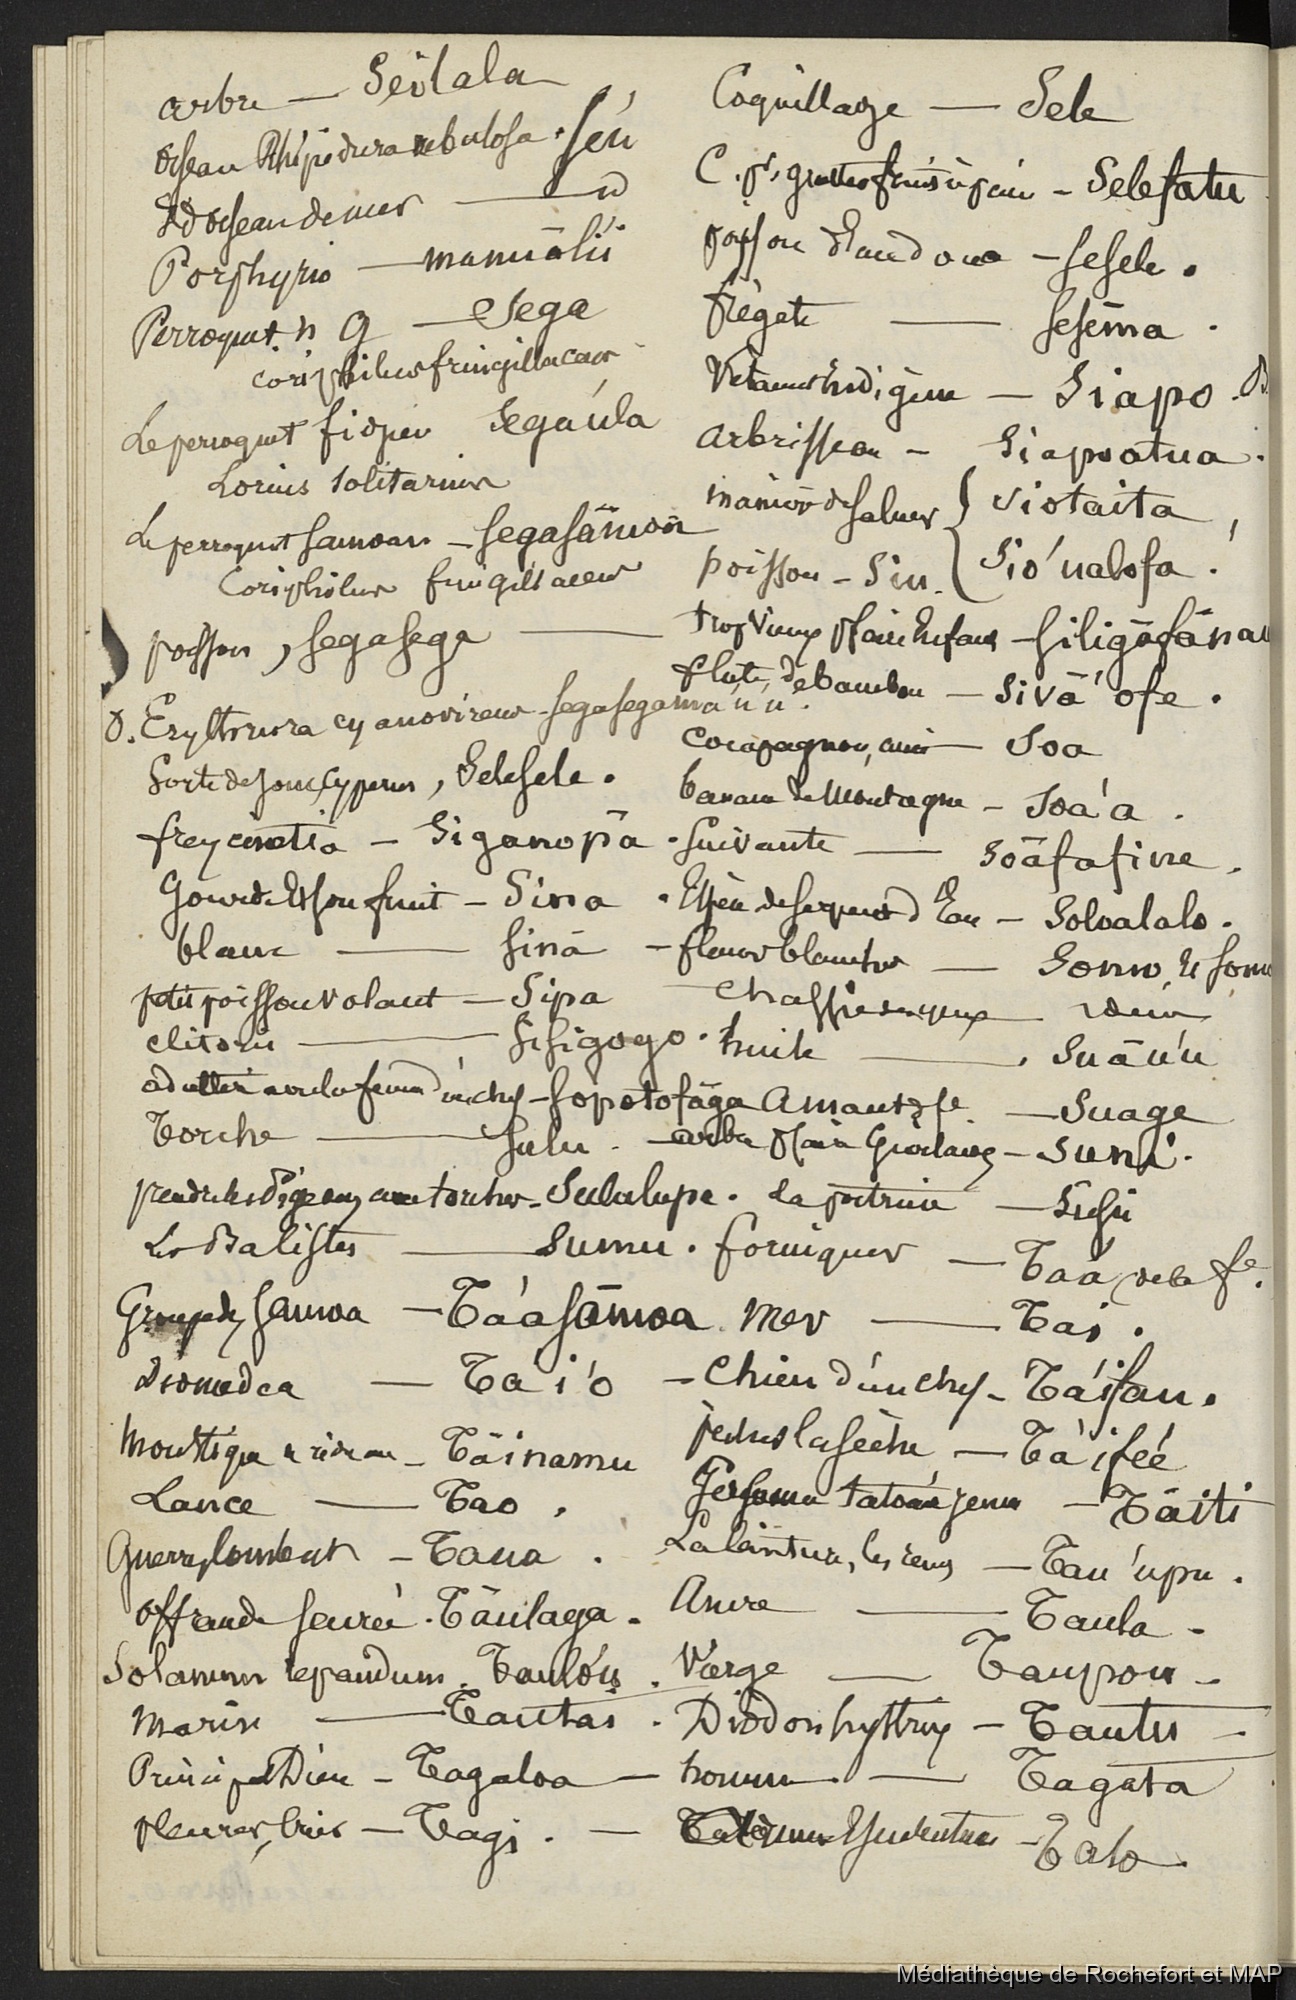 arbre — Seilala
oiseau Rhipidura nebulosa . Séu
Id oiseau de mer — id
Porphyrio — manuālii
Perroquet n g — Sega
coriphilus fringillaceus
Le perroquet fidjien Segaúla
Lorius solitarius
Le perroquet samoan — segasāmoa
Coriphilus fringillaceus
poisson, segasega
O. Erythrura cyanovirens — segasegamaúú.
Sorte de jonc, Cyperus, Selesele.
freycinetia — Siganopā .
Gourde et son fruit — Sina .
blanc — sinā
petit poisson volant — Sipa
clitoris — Sisigogo .
adultère avec la femme d'un chef — sopotofāga
Torche — Sulu .
prendre les pigeons avec torches — Sululupe .
Les Balistes — Sumu .
Groupe des Samoa — Tá'asāmoa
Diomedea — Tá'i'o
Moustiquaire rideau — Tāinamu
Lance — Tao .
Guerre, combat — Taua .
offrande sacrée . Tāulaga .
Solanum repandum . Taulóu .
Marin — Tautai .
Principal Dieu — Tagaloa
pleurer, crier — Tagi .
Coquillage — Sele
C. pr. gratter fruit à pain — Selefatu
poisson d'eau douce — sesele .
frégate — sesēma .
Vêtement indigène — Siapo .
Arbrisseau — Siapoatua .
manière de saluer { Viotaita ,
poisson — Siu . { Sió'ualofa .
trop vieux pr faire enfants — siligāfānau
flûte de bambou — Sivā'ofe .
Compagnon, ami — Soa
banane de Montagne — Soa'a .
Suivante — Soāfafine .
Espèce de serpent d'Eau — Soloalalo .
fleurs blanches — Sonu, et
Chassie des yeux —
huile — Suāu'u
Amant, fe — Suage
arbre pr faire Guirlandes — Suni .
la poitrine — Susu
forniquer — Taá, de la fe.
Mer — Tai .
Chien d'un chef — Tá'ifau .
pêcher la sèche — Tá'ifeé
Personne tatouée jeune — Tāiti
La Ceinture, les reins — Tau'upu .
Ancre — Taula .
Vierge — Taupou .
Diodon hystrix — Tautu
homme — Tagata
Esculentum — Talo
Médiathèque de Rochefort et MAP